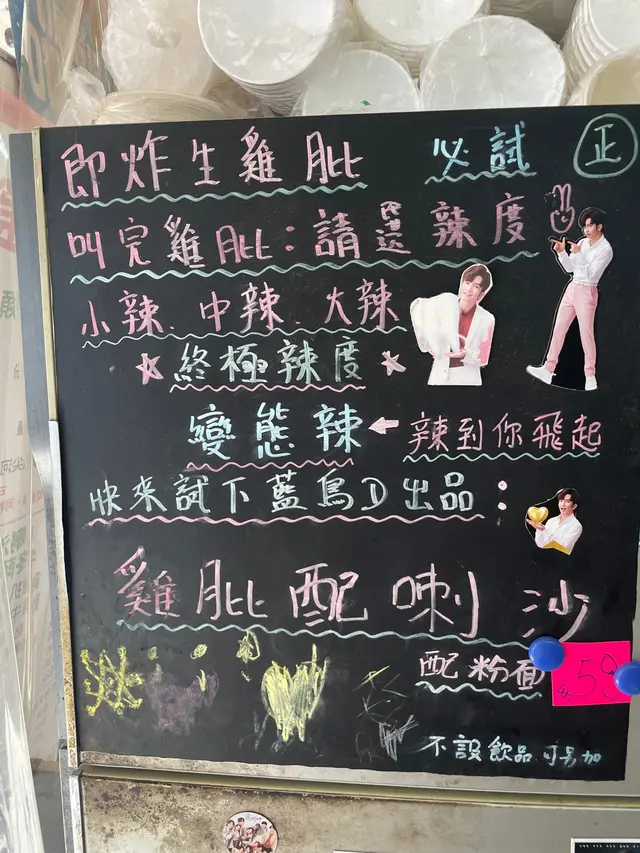 即炸生雞髀 必試 正
叫完雞髀：請選辣度
小辣、中辣、大辣
終極辣度
變態辣←辣到你飛起
快來試下藍鳥D出品：
雞髀配喇沙
配粉面 $59
不設飲品 可另加